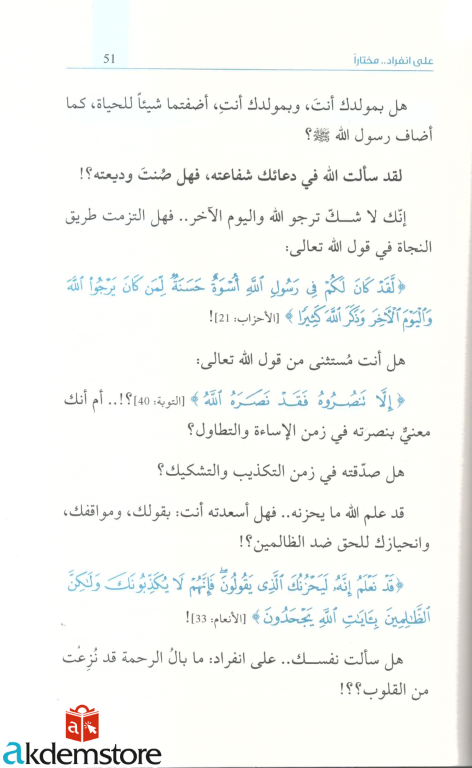 على انفراد.. مختاراً
51
هل بمولدك أنتَ، وبمولدك أنتِ، أضفتما شيئاً للحياة، كما
أضاف رسول الله ﷺ؟
لقد سألت الله في دعائك شفاعته، فهل صُنتَ وديعته؟!
إنّك لا شـــكّ ترجو الله واليوم الآخر.. فهل التزمت طريق
النجاة في قول الله تعالى:
﴿لَّقَدْ كَانَ لَكُمْ فِي رَسُولِ ٱللَّهِ أُسْوَةٌ حَسَنَةٌ لِّمَن كَانَ يَرْجُوا۟ ٱللَّهَ
وَٱلْيَوْمَ ٱلْآخِرَ وَذَكَرَ ٱللَّهَ كَثِيرًا﴾ [الأحزاب: 21]!
هل أنت مُستثنى من قول الله تعالى:
﴿إِلَّا تَنصُرُوهُ فَقَدْ نَصَرَهُ ٱللَّهُ﴾ [التوبة: 40]؟!.. أم أنك
معنيٌّ بنصرته في زمن الإساءة والتطاول؟
هل صدّقته في زمن التكذيب والتشكيك؟
قد علم الله ما يحزنه.. فهل أسعدته أنت: بقولك، ومواقفك،
وانحيازك للحق ضد الظالمين؟!
﴿قَدْ نَعْلَمُ إِنَّهُۥ لَيَحْزُنُكَ ٱلَّذِى يَقُولُونَ ۖ فَإِنَّهُمْ لَا يُكَذِّبُونَكَ وَلَٰكِنَّ
ٱلظَّٰلِمِينَ بِـَٔايَٰتِ ٱللَّهِ يَجْحَدُونَ﴾ [الأنعام: 33]!
هل سألت نفســك.. على انفراد: ما بالُ الرحمة قد نُزِعْت
من القلوب؟؟!
akdemstore